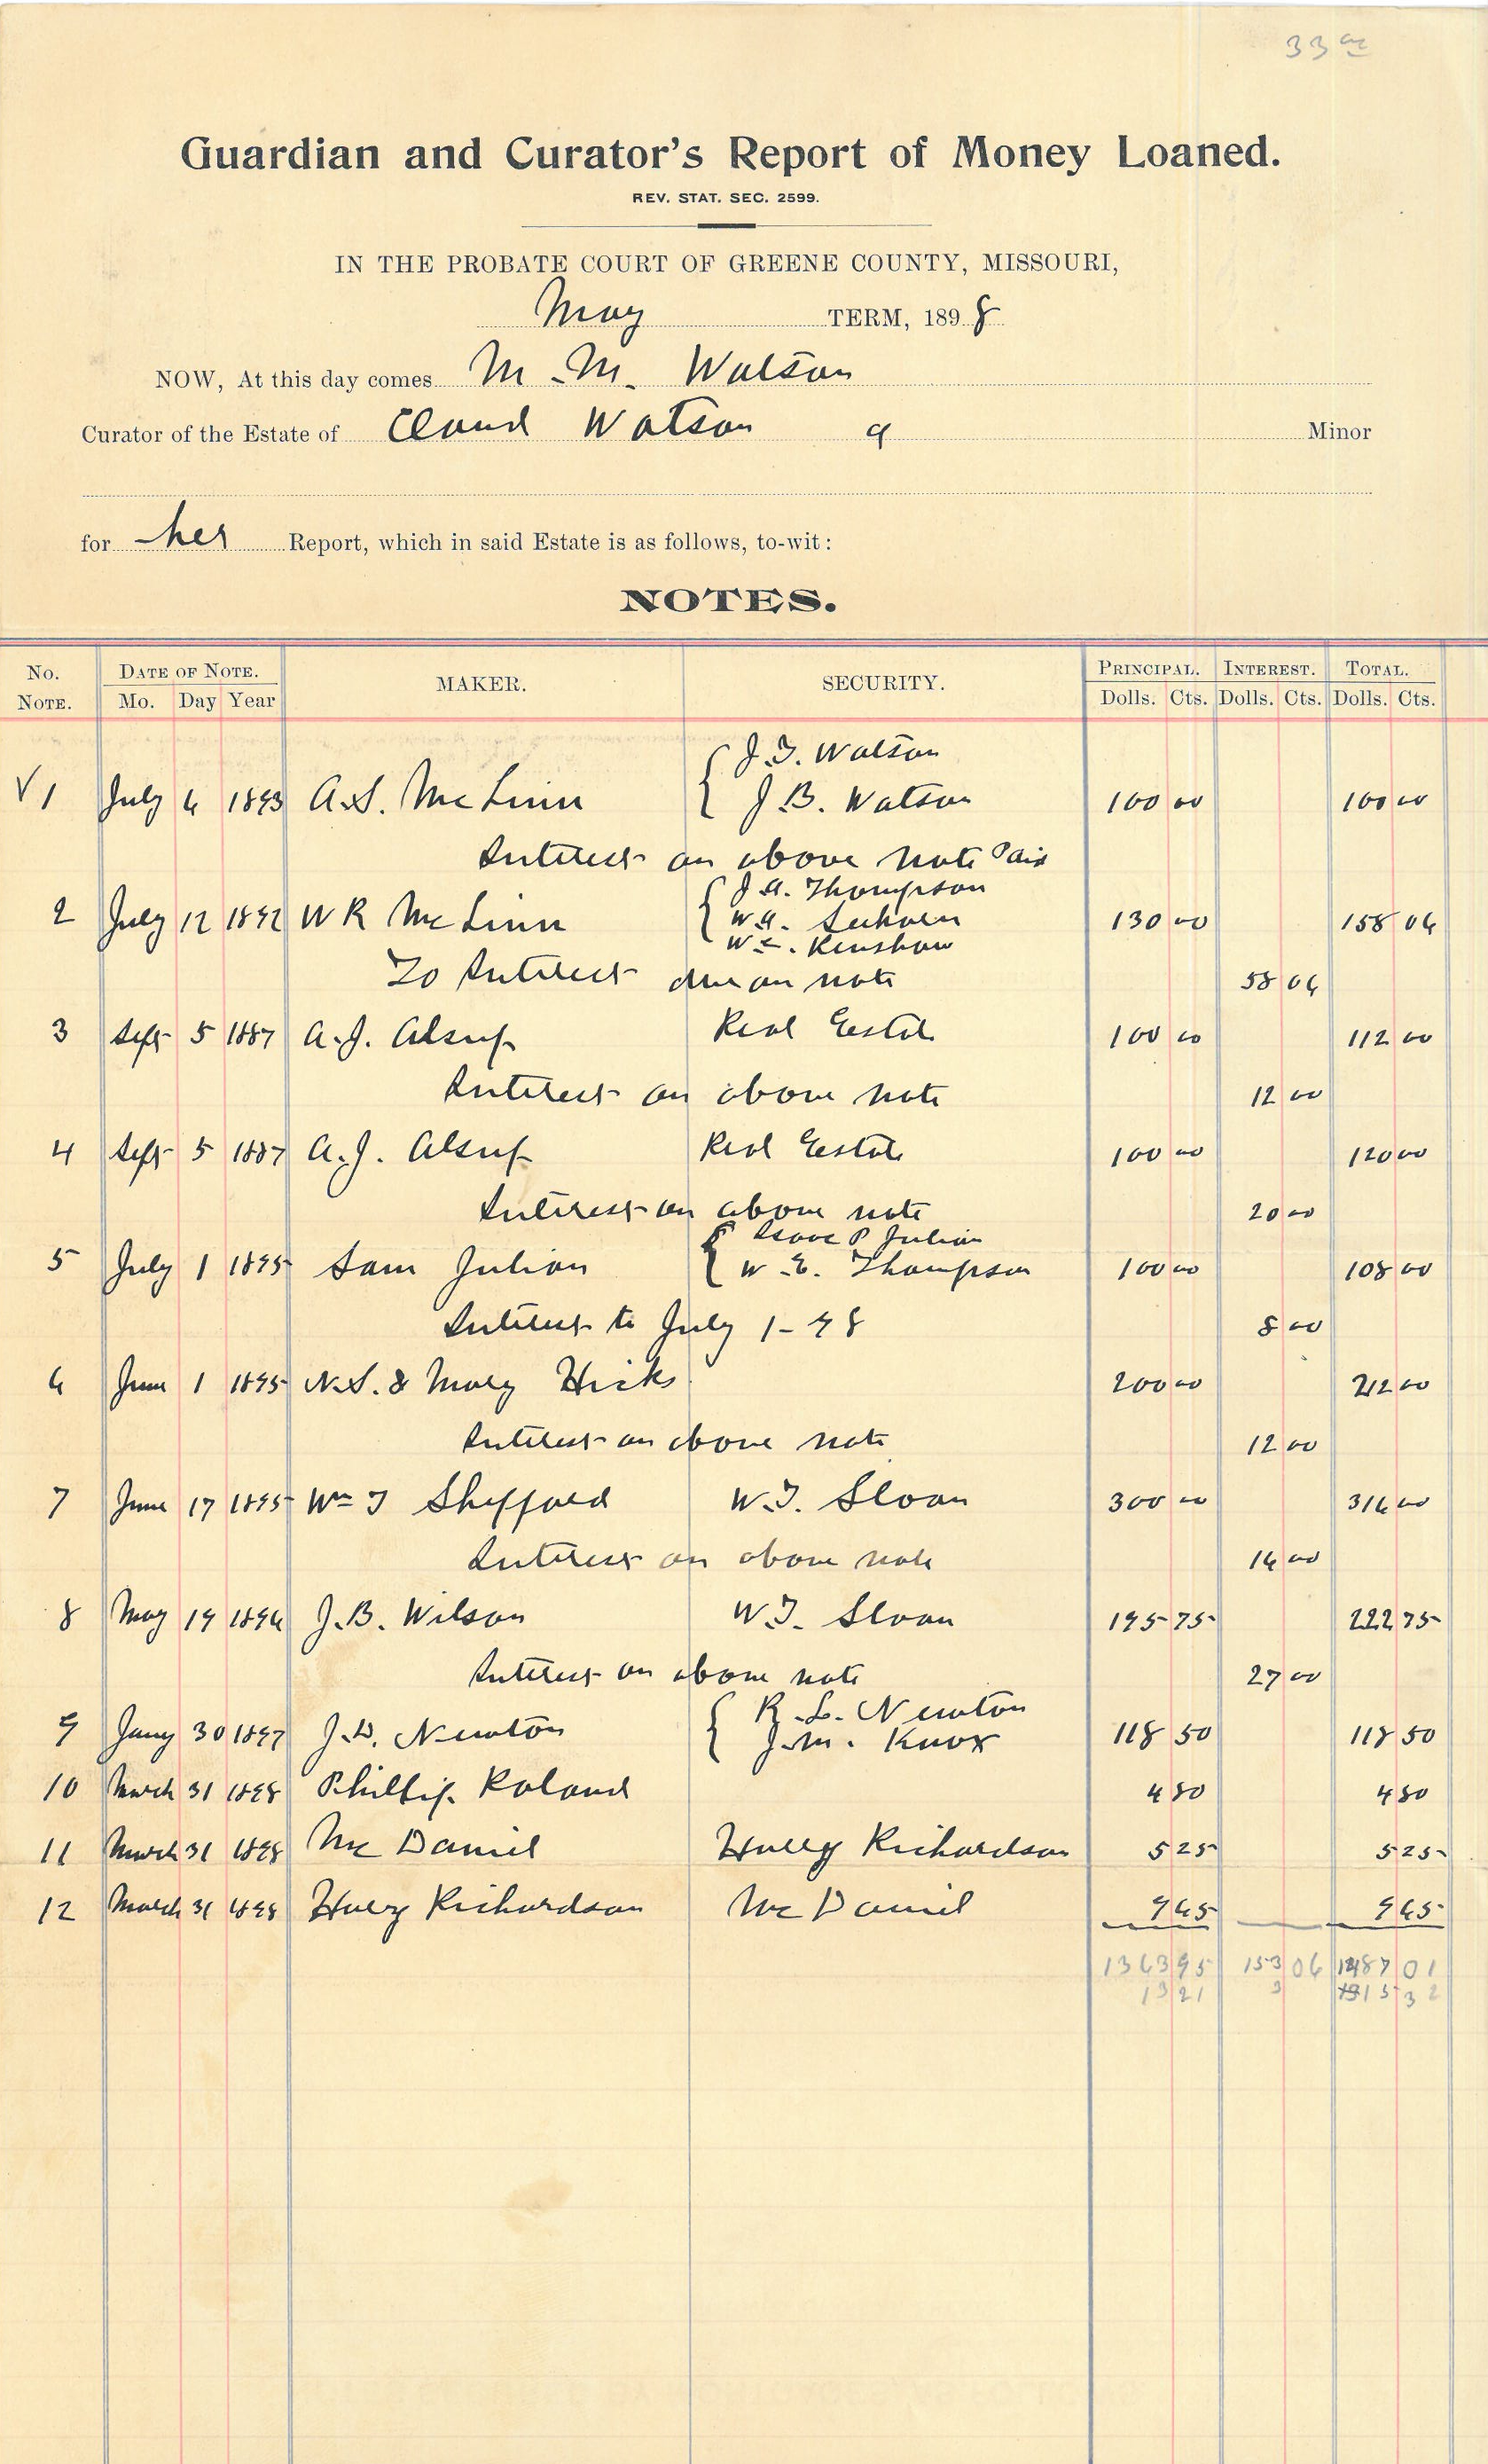 33 ac
Guardian and Curator's Report of Money Loaned.
REV. STAT. SEC. 2599.
IN THE PROBATE COURT OF GREENE COUNTY, MISSOURI,
May TERM, 1898
NOW, At this day comes M. M. Watson
Curator of the Estate of Claud Watson a Minor
for her Report, which in said Estate is as follows, to-wit:
NOTES.
No. NOTE. DATE OF NOTE. Mo. Day Year MAKER. SECURITY. PRINCIPAL. Dolls. Cts. INTEREST. Dolls. Cts. TOTAL. Dolls. Cts.
J. T. Watson
√ 1 July 6 1893 A.S. McLinn J. B. Watson 100 00 100 00
Interest on above note Paid
J. A. Thompson
2 July 12 1892 W R McLinn W A. 130 00 158 06
W . Renshaw
To Interest due on note 58 06
3 Sept 5 1887 A. J. Alsup Real Estate 100 00 112 00
Interest on above note 12 00
4 Sept 5 1887 A. J. Alsup Real Estate 100 00 120 00
Interest on above note 20 00
P Julian
5 July 1 1895 Sam Julian W. E. Thompson 100 00 108 00
Interest to July 1 - 98 8 00
6 June 1 1895 N.S. & Mary Hicks 200 00 212 00
Interest on above note 12 00
7 June 17 1895 Wm T Sheppard W. T. Sloan 300 00 316 00
Interest on above note 16 00
8 May 19 1896 J. B. Wilson W. T. Sloan 195 75 222 75
Interest on above note 27 00
R. L. Newton
9 Jany 30 1897 J. D. Newton J. M. Knox 118 50 118 50
10 March 31 1898 Phillip Roland 4 80 4 80
11 March 31 1898 McDaniel Harry Richardson 5 25 5 25
12 March 31 1898 Harry Richardson McDaniel 9 65 9 65
1363 95 153 06 1487 01
13 21 3 1515 32